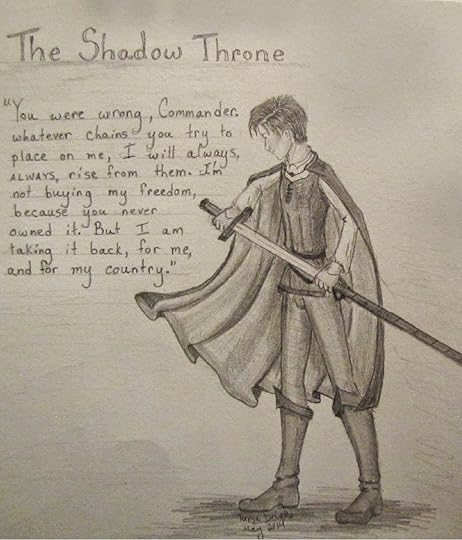 The Shadow Throne
"You were wrong, Commander.
whatever chains you try to
place on me, I will always,
ALWAYS, rise from them. I'm
not buying my freedom,
because you never
owned it. But I am
taking it back, for me,
and for my country."
May 2014